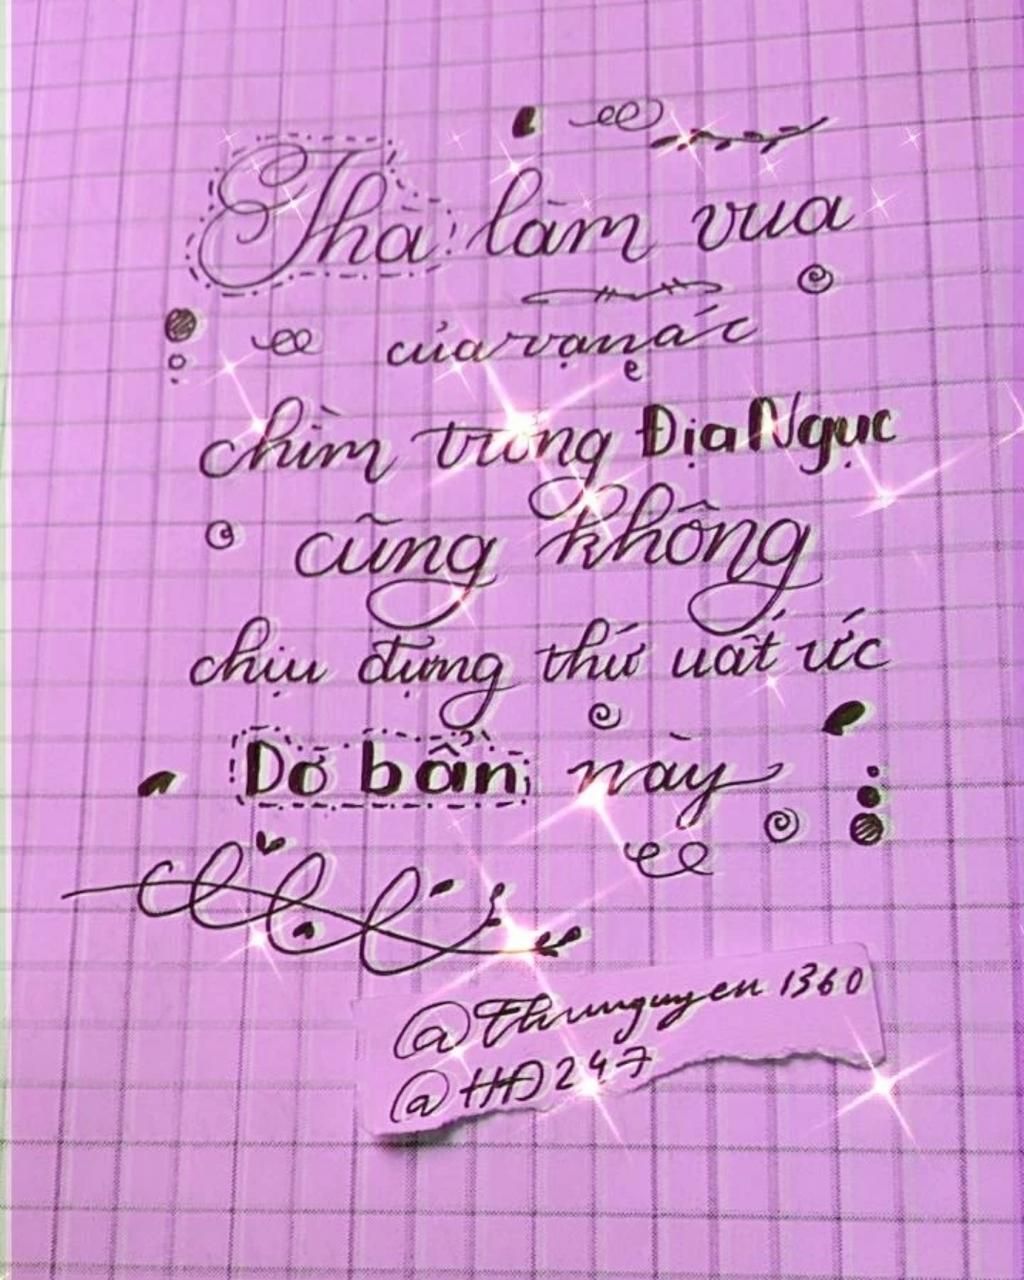 Thà làm vua
của vạn ác
chìm trong Địa Ngục
cũng không
chịu đựng thứ uất ức
Dơ bẩn này
@Thunguyen 1360
@HĐ247